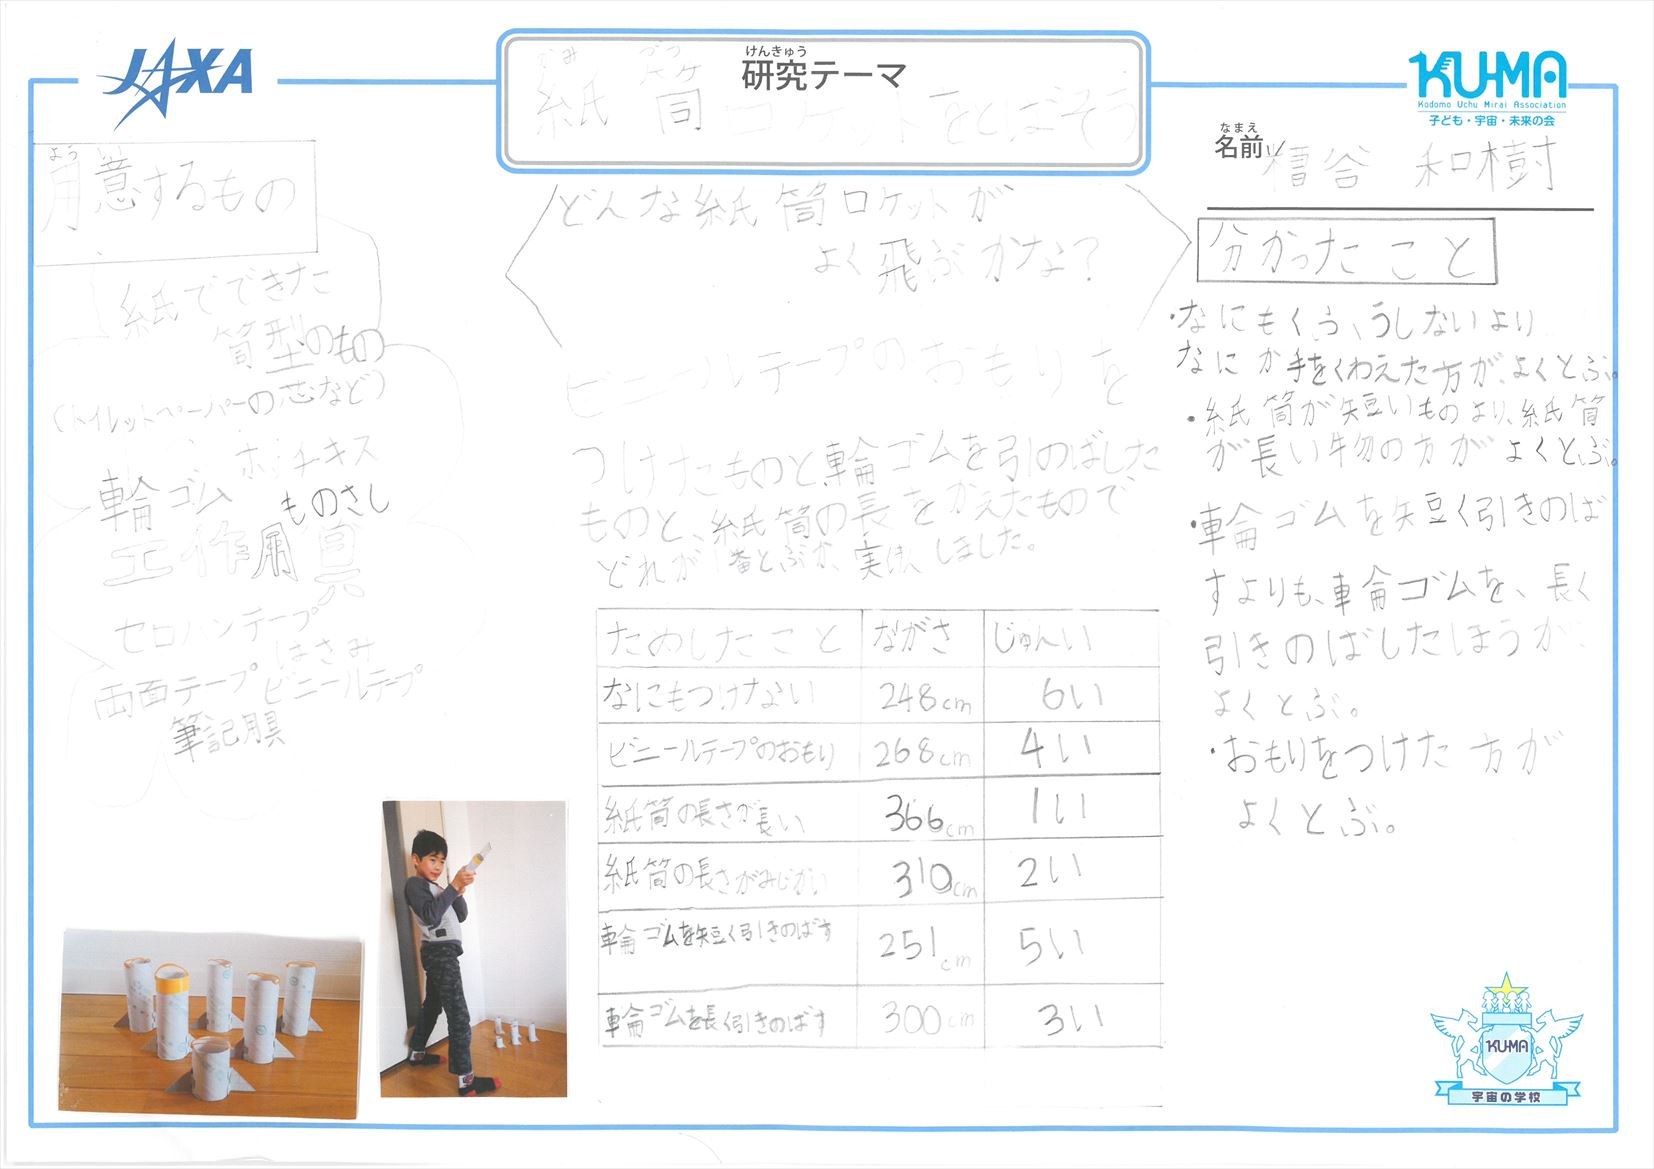 JAXA
けんきゅう
研究テーマ
かみ づつ
紙筒ロケットをとばそう
KU-MA
Kodomo Uchu Mirai Association
子ども・宇宙・未来の会
なまえ
名前
糟谷 和樹
ようい
用意するもの
紙でできた
筒型のもの
(トイレットペーパーの芯など)
ホチキス
輪ゴム
ものさし
工作用具
セロハンテープ
はさみ
両面テープ ビニールテープ
筆記用具
どんな紙筒ロケットが
よく飛ぶかな?
ビニールテープのおもりを
つけたものと、輪ゴムを引のばした
ものと、紙筒の長をかえたもので
どれが1番とぶか、実けんしました。
ためしたこと ながさ じゅんい
なにもつけない 248cm 6い
ビニールテープのおもり 268cm 4い
紙筒の長さが長い 366cm 1い
紙筒の長さがみじかい 310cm 2い
輪ゴムを短く引きのばす 251cm 5い
輪ゴムを長く引きのばす 300cm 3い
分かったこと
・なにもくふうしないより
なにか手をくわえた方が、よくとぶ。
・紙筒が短いものより、紙筒
が長い物の方がよくとぶ。
・輪ゴムを短く引きのば
すよりも、輪ゴムを、長く
引きのばしたほうが
よくとぶ。
・おもりをつけた方が
よくとぶ。
KU-MA
宇宙の学校